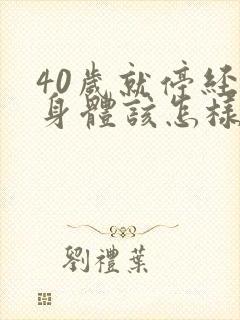 40歲就停經
身體該怎樣
劉禮葉